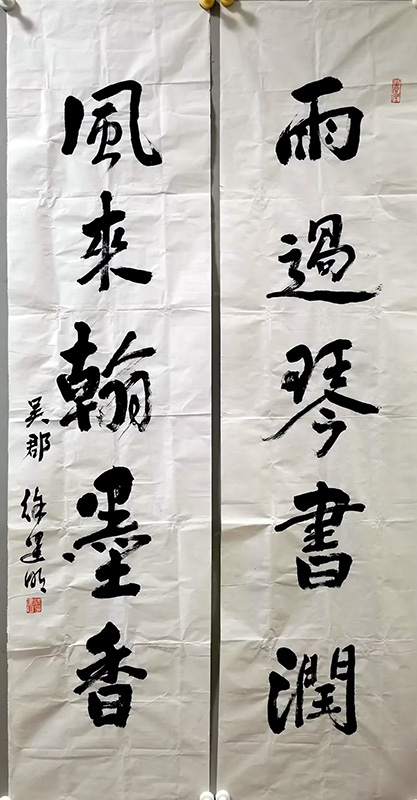 雨過琴書潤
風來翰墨香
吴郡 徐建明